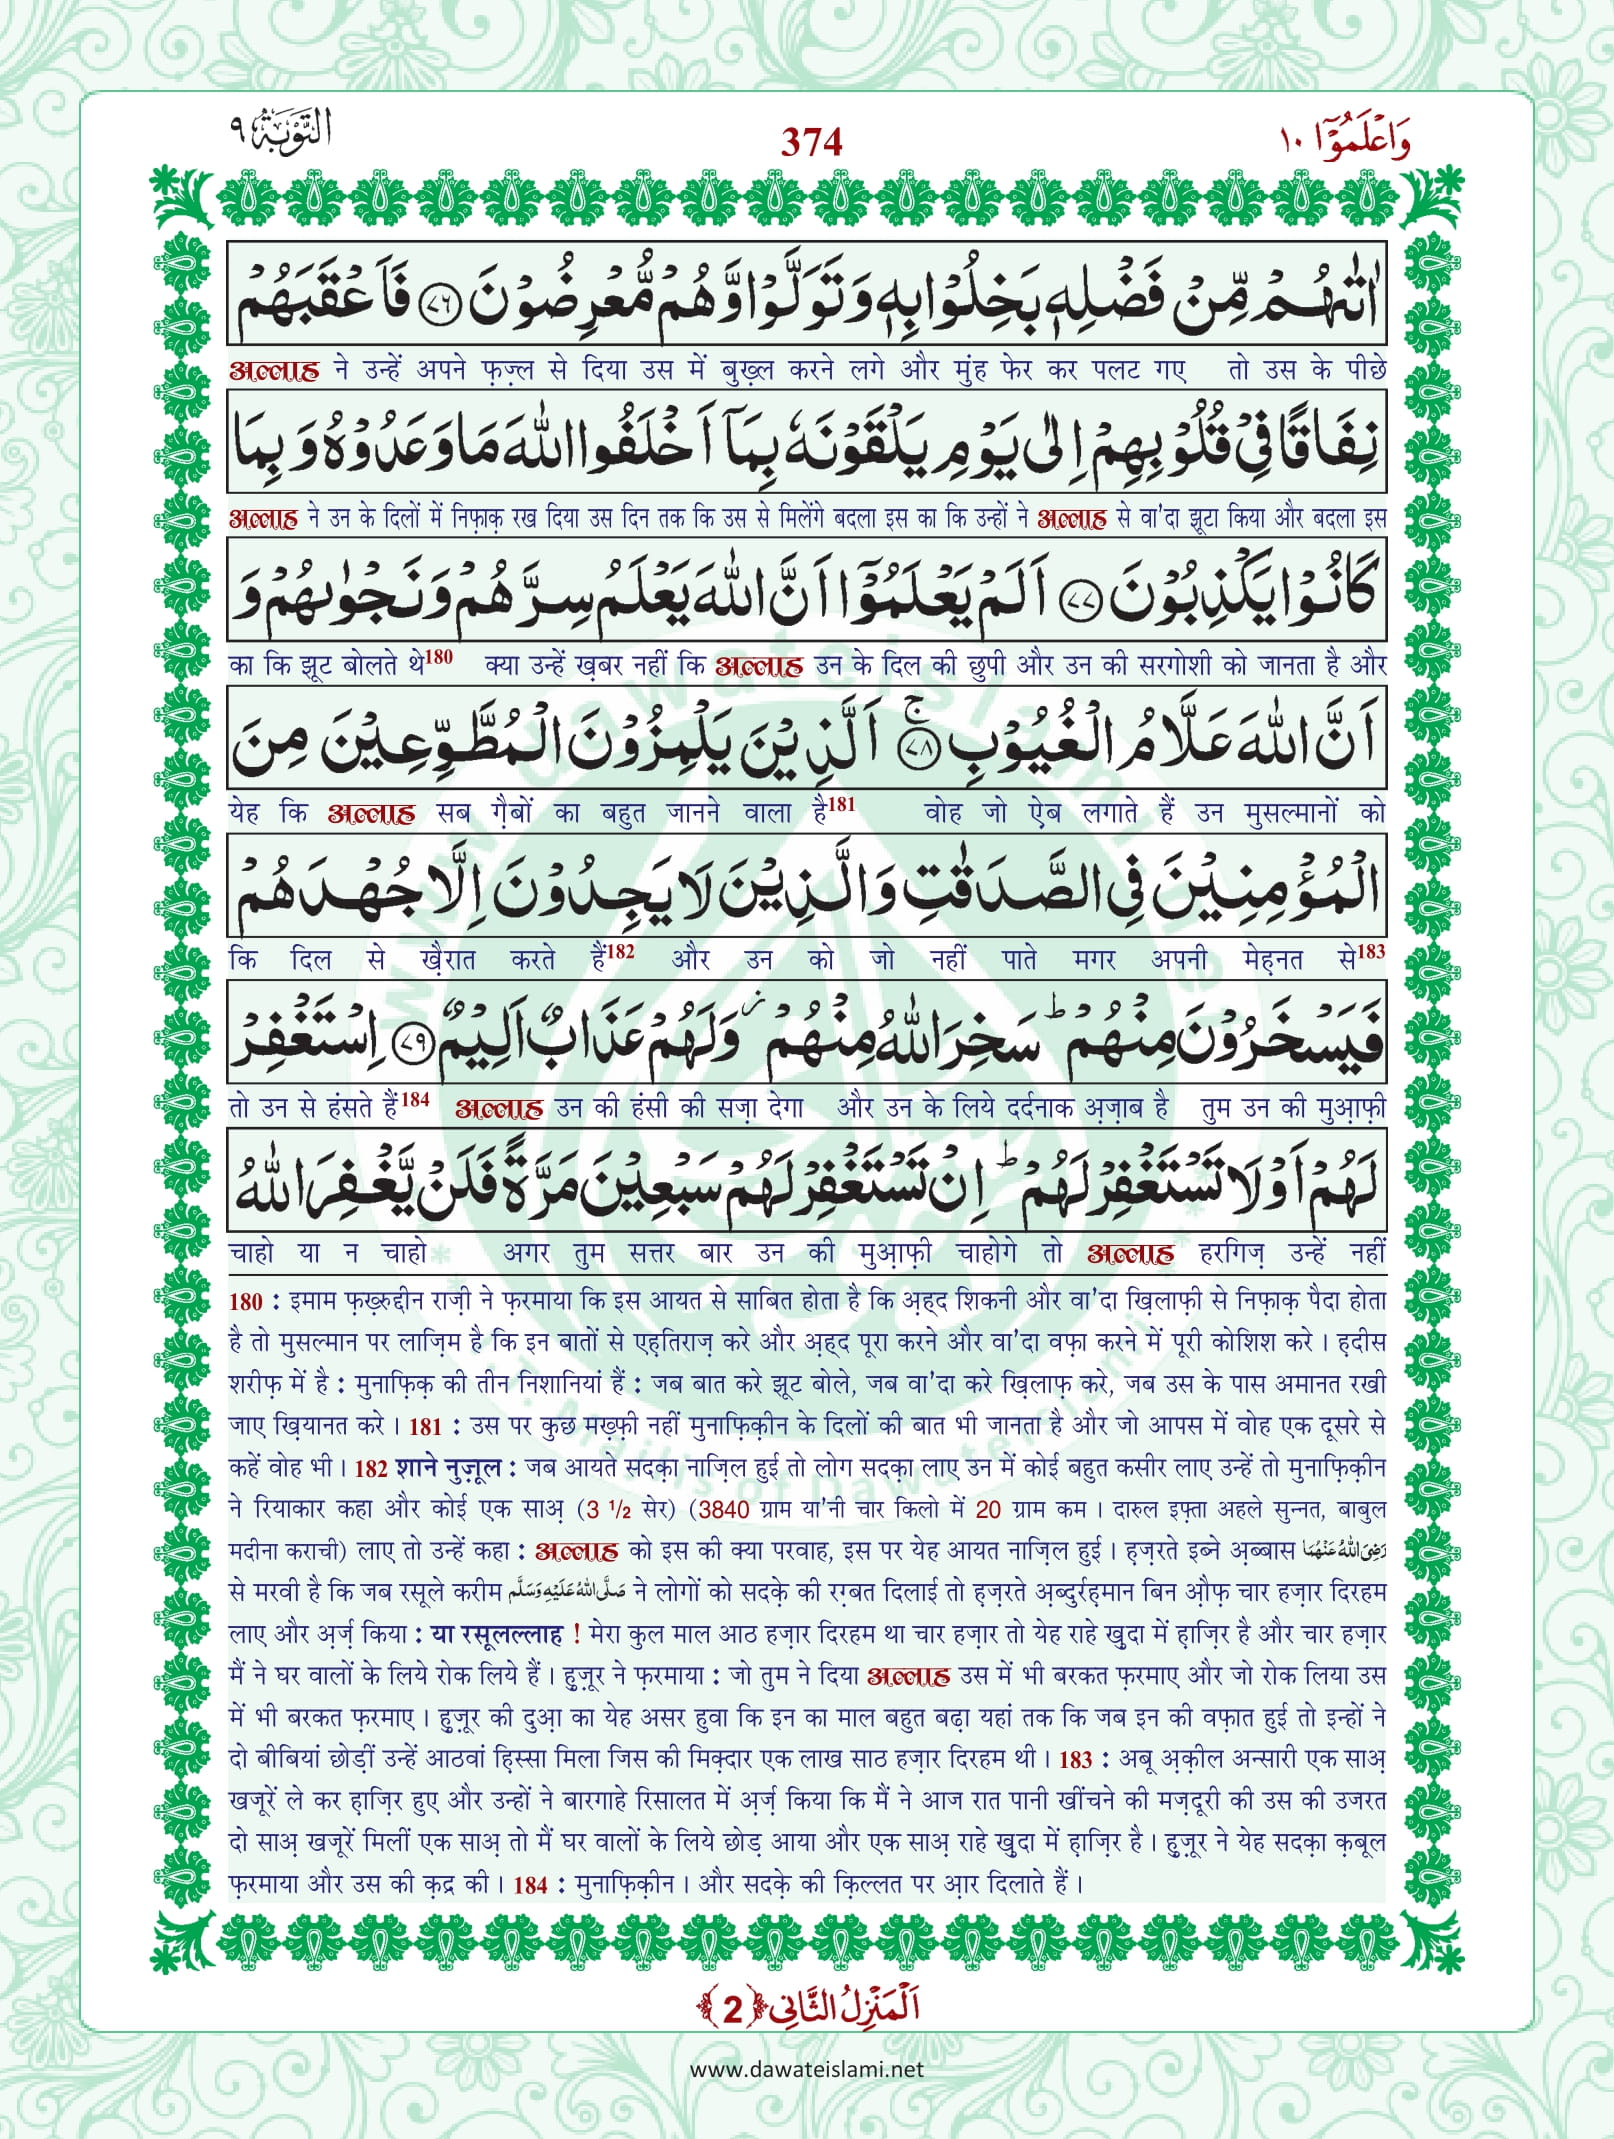 التوبة ٩
374
وَاعْلَمُوْۤا ١٠
اٰتٰىهُمْ مِّنْ فَضْلِهٖ بَخِلُوْا بِهٖ وَ تَوَلَّوْا وَّ هُمْ مُّعْرِضُوْنَ ﴿٧٦﴾ فَاَعْقَبَهُمْ
अल्लाह ने उन्हें अपने फ़ज़्ल से दिया उस में बुख़्ल करने लगे और मुंह फेर कर पलट गए तो उस के पीछे
نِفَاقًا فِیْ قُلُوْبِهِمْ اِلٰى یَوْمِ یَلْقَوْنَهٗ بِمَاۤ اَخْلَفُوا اللّٰهَ مَا وَعَدُوْهُ وَ بِمَا
अल्लाह ने उन के दिलों में निफ़ाक़ रख दिया उस दिन तक कि उस से मिलेंगे बदला इस का कि उन्हों ने अल्लाह से वा'दा झूटा किया और बदला इस
كَانُوْا یَكْذِبُوْنَ ﴿٧٧﴾ اَلَمْ یَعْلَمُوْۤا اَنَّ اللّٰهَ یَعْلَمُ سِرَّهُمْ وَ نَجْوٰىهُمْ وَ
का कि झूट बोलते थे180 क्या उन्हें ख़बर नहीं कि अल्लाह उन के दिल की छुपी और उन की सरगोशी को जानता है और
اَنَّ اللّٰهَ عَلَّامُ الْغُیُوْبِ ﴿٧٨﴾ۚ اَلَّذِیْنَ یَلْمِزُوْنَ الْمُطَّوِّعِیْنَ مِنَ
येह कि अल्लाह सब ग़ैबों का बहुत जानने वाला है181 वोह जो ऐब लगाते हैं उन मुसल्मानों को
الْمُؤْمِنِیْنَ فِی الصَّدَقٰتِ وَ الَّذِیْنَ لَا یَجِدُوْنَ اِلَّا جُهْدَهُمْ
कि दिल से ख़ैरात करते हैं182 और उन को जो नहीं पाते मगर अपनी मेहनत से183
فَیَسْخَرُوْنَ مِنْهُمْ ؕ سَخِرَ اللّٰهُ مِنْهُمْ ؗ وَ لَهُمْ عَذَابٌ اَلِیْمٌ ﴿٧٩﴾ اِسْتَغْفِرْ
तो उन से हंसते हैं184 अल्लाह उन की हंसी की सज़ा देगा और उन के लिये दर्दनाक अ़ज़ाब है तुम उन की मुआ़फ़ी
لَهُمْ اَوْ لَا تَسْتَغْفِرْ لَهُمْ ؕ اِنْ تَسْتَغْفِرْ لَهُمْ سَبْعِیْنَ مَرَّةً فَلَنْ یَّغْفِرَ اللّٰهُ
चाहो या न चाहो अगर तुम सत्तर बार उन की मुआ़फ़ी चाहोगे तो अल्लाह हरगिज़ उन्हें नहीं
180 : इमाम फ़ख़्रुद्दीन राज़ी ने फ़रमाया कि इस आयत से साबित होता है कि अ़ह्द शिकनी और वा'दा ख़िलाफ़ी से निफ़ाक़ पैदा होता
है तो मुसल्मान पर लाज़िम है कि इन बातों से एह़तिराज़ करे और अ़ह्द पूरा करने और वा'दा वफ़ा करने में पूरी कोशिश करे । ह़दीस
शरीफ़ में है : मुनाफ़िक़ की तीन निशानियां हैं : जब बात करे झूट बोले, जब वा'दा करे ख़िलाफ़ करे, जब उस के पास अमानत रखी
जाए ख़ियानत करे । 181 : उस पर कुछ मख़्फ़ी नहीं मुनाफ़िक़ीन के दिलों की बात भी जानता है और जो आपस में वोह एक दूसरे से
कहें वोह भी । 182 शाने नुज़ूल : जब आयते सदक़ा नाज़िल हुई तो लोग सदक़ा लाए उन में कोई बहुत कसीर लाए उन्हें तो मुनाफ़िक़ीन
ने रियाकार कहा और कोई एक साअ़ (3 ½ सेर) (3840 ग्राम या'नी चार किलो में 20 ग्राम कम । दारुल इफ़्ता अहले सुन्नत, बाबुल
मदीना कराची) लाए तो उन्हें कहा : अल्लाह को इस की क्या परवाह, इस पर येह आयत नाज़िल हुई । ह़ज़रते इब्ने अ़ब्बास رَضِیَ اللّٰهُ عَنْهُمَا
से मरवी है कि जब रसूले करीम صَلَّى اللّٰهُ عَلَیْهِ وَسَلَّم ने लोगों को सदक़े की रग़्बत दिलाई तो ह़ज़रते अ़ब्दुर्रह़मान बिन औ़फ़ चार हज़ार दिरहम
लाए और अ़र्ज़ किया : या रसूलल्लाह ! मेरा कुल माल आठ हज़ार दिरहम था चार हज़ार तो येह राहे ख़ुदा में ह़ाज़िर है और चार हज़ार
मैं ने घर वालों के लिये रोक लिये हैं । हुज़ूर ने फ़रमाया : जो तुम ने दिया अल्लाह उस में भी बरकत फ़रमाए और जो रोक लिया उस
में भी बरकत फ़रमाए । हुज़ूर की दुआ़ का येह असर हुवा कि इन का माल बहुत बढ़ा यहां तक कि जब इन की वफ़ात हुई तो इन्हों ने
दो बीबियां छोड़ीं उन्हें आठवां ह़िस्सा मिला जिस की मिक़्दार एक लाख साठ हज़ार दिरहम थी । 183 : अबू अ़क़ील अन्सारी एक साअ़
खजूरें ले कर ह़ाज़िर हुए और उन्हों ने बारगाहे रिसालत में अ़र्ज़ किया कि मैं ने आज रात पानी खींचने की मज़दूरी की उस की उजरत
दो साअ़ खजूरें मिलीं एक साअ़ तो मैं घर वालों के लिये छोड़ आया और एक साअ़ राहे ख़ुदा में ह़ाज़िर है । हुज़ूर ने येह सदक़ा क़बूल
फ़रमाया और उस की क़द्र की । 184 : मुनाफ़िक़ीन । और सदक़े की क़िल्लत पर आ़र दिलाते हैं ।
اَلْمَنْزِلُ الثَّانِی ﴿2﴾
www.dawateislami.net